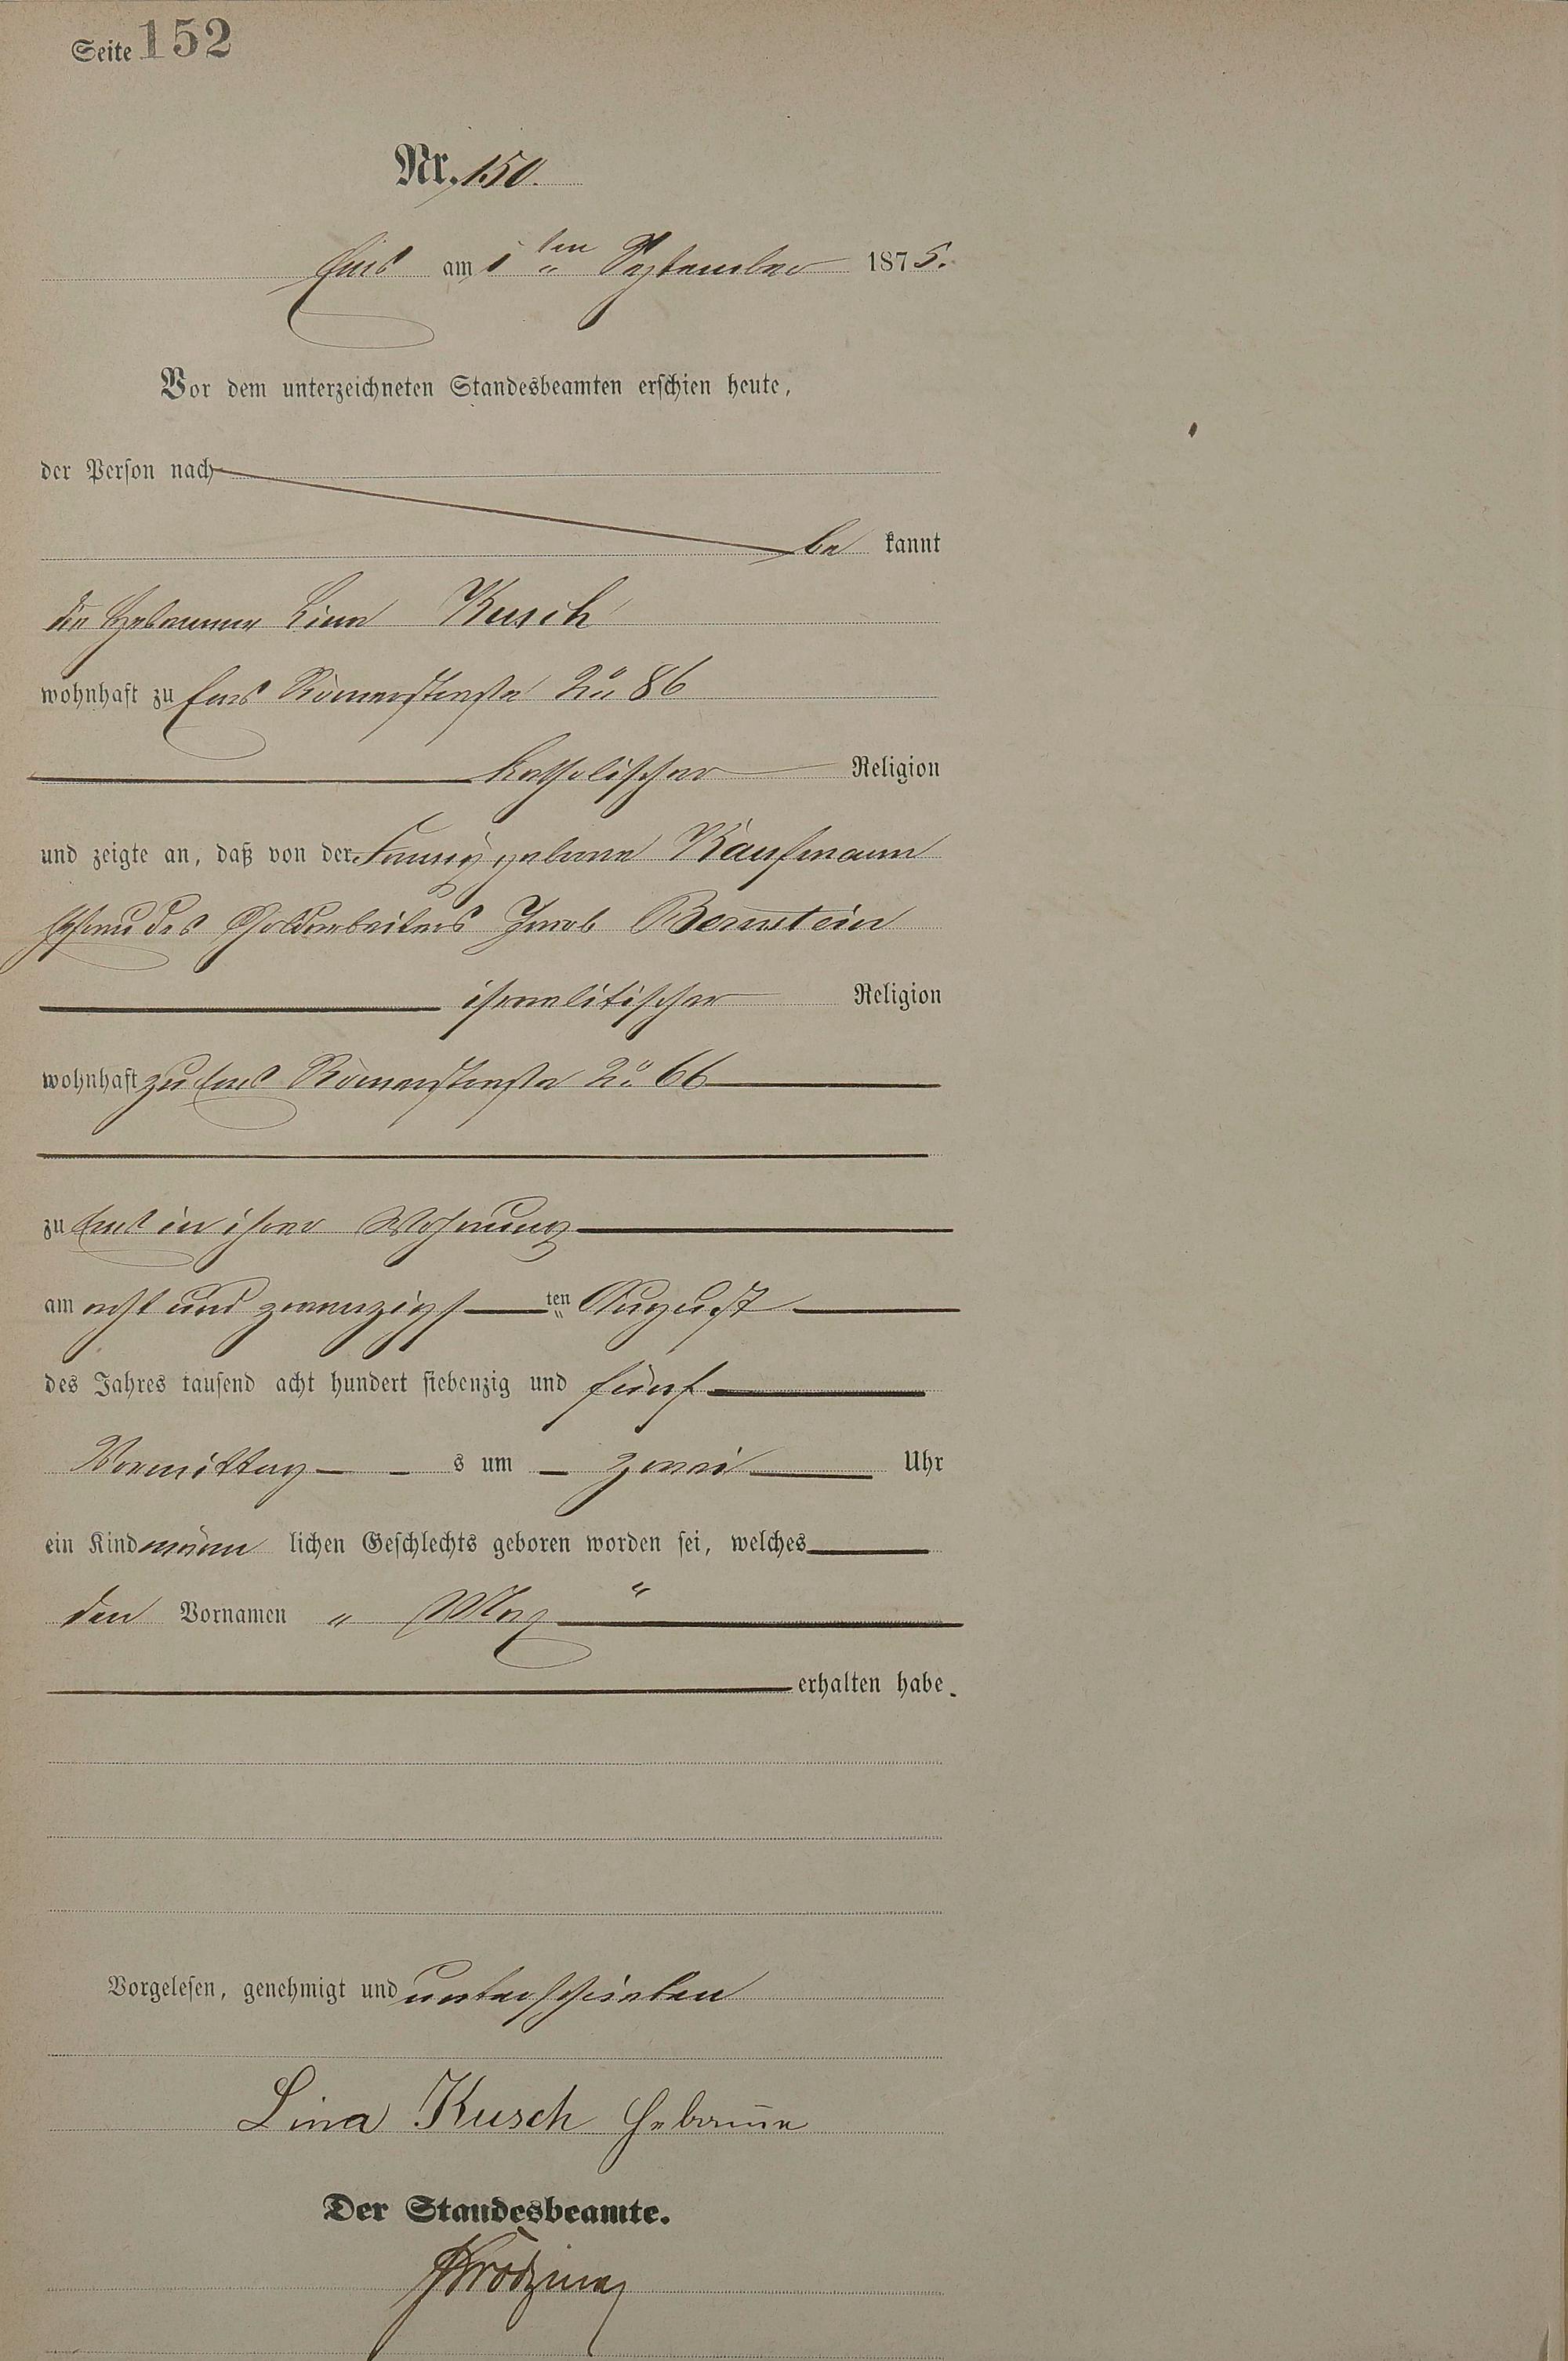 Seite 152
Nr. 150.
Ems am 1ten September 1875.
Vor dem unterzeichneten Standesbeamten erschien heute,
der Person nach
be kannt
die Hebamme Lina Kusch
wohnhaft zu Ems Römerstraße No 86
katholischer Religion
und zeigte an, daß von der Fanny geborne Kaufmann
Ehefrau des Goldarbeiters Jacob Bernstein
israelitischer Religion
wohnhaft zu Ems Römerstraße No 66
zu Ems in ihrer Wohnung
am acht und zwanzigsten August
des Jahres tausend acht hundert siebenzig und fünf
Vormittag s um zwei Uhr
ein Kind männ lichen Geschlechts geboren worden sei, welches
den Vornamen " Max "
erhalten habe.
Vorgelesen, genehmigt und unterschrieben
Lina Kusch Hebamme
Der Standesbeamte.